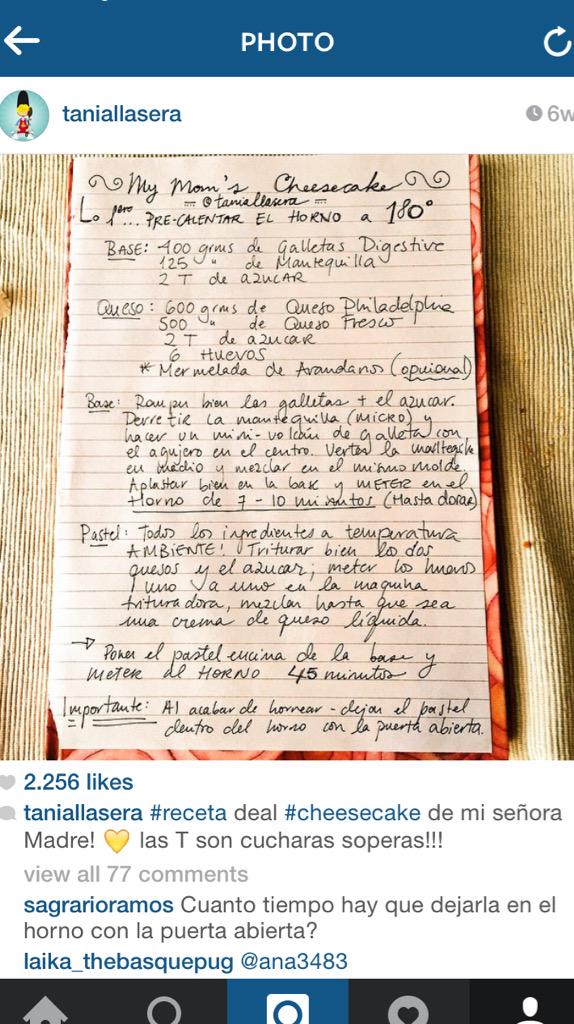 PHOTO
taniallasera
6w
My Mom's Cheesecake
= @taniallasera =
Lo 1º... PRE-CALENTAR EL HORNO a 180°
BASE: 400 grms de Galletas Digestive
125 " de Mantequilla
2 T de azucar
Queso: 600 grms de Queso Philadelphia
500 " de Queso Fresco
2 T de azucar
6 Huevos
* Mermelada de Arandanos (opcional)
Base: Rompu bien las galletas + el azucar.
Derretir la mantequilla (MICRO) y
hacer un mini-volcán de galleta con
el agujero en el centro. Verter la
en medio y mezclar en el mismo molde.
Aplastar bien en la base y METER en el
Horno de 7-10 minutos (Hasta dorar)
Pastel: Todos los ingredientes a temperatura
AMBIENTE! Triturar bien los dos
quesos y el azucar; meter los huevos
1 uno a uno en la maquina
trituradora, mezclar hasta que sea
una crema de queso líquida.
→ Poner el pastel encima de la base y
METER al HORNO 45 minutos
Importante: Al acabar de hornear - dejar el pastel
dentro del horno con la puerta abierta.
2.256 likes
taniallasera #receta deal #cheesecake de mi señora
Madre! 💛 las T son cucharas soperas!!!
view all 77 comments
sagrarioramos Cuanto tiempo hay que dejarla en el
horno con la puerta abierta?
laika_thebasquepug @ana3483